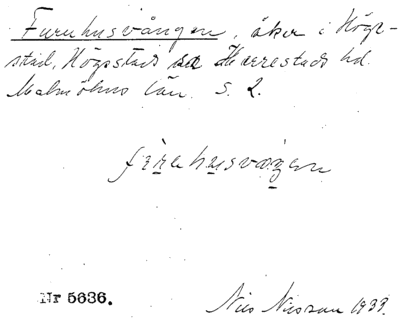 Furuhusvången, åker i Högs-
stad, Högestads sn Herrestads hd.
Malmöhus län. S. 2.
furehusvaŋen
Nr 5636.
Nils Nilsson 1933.